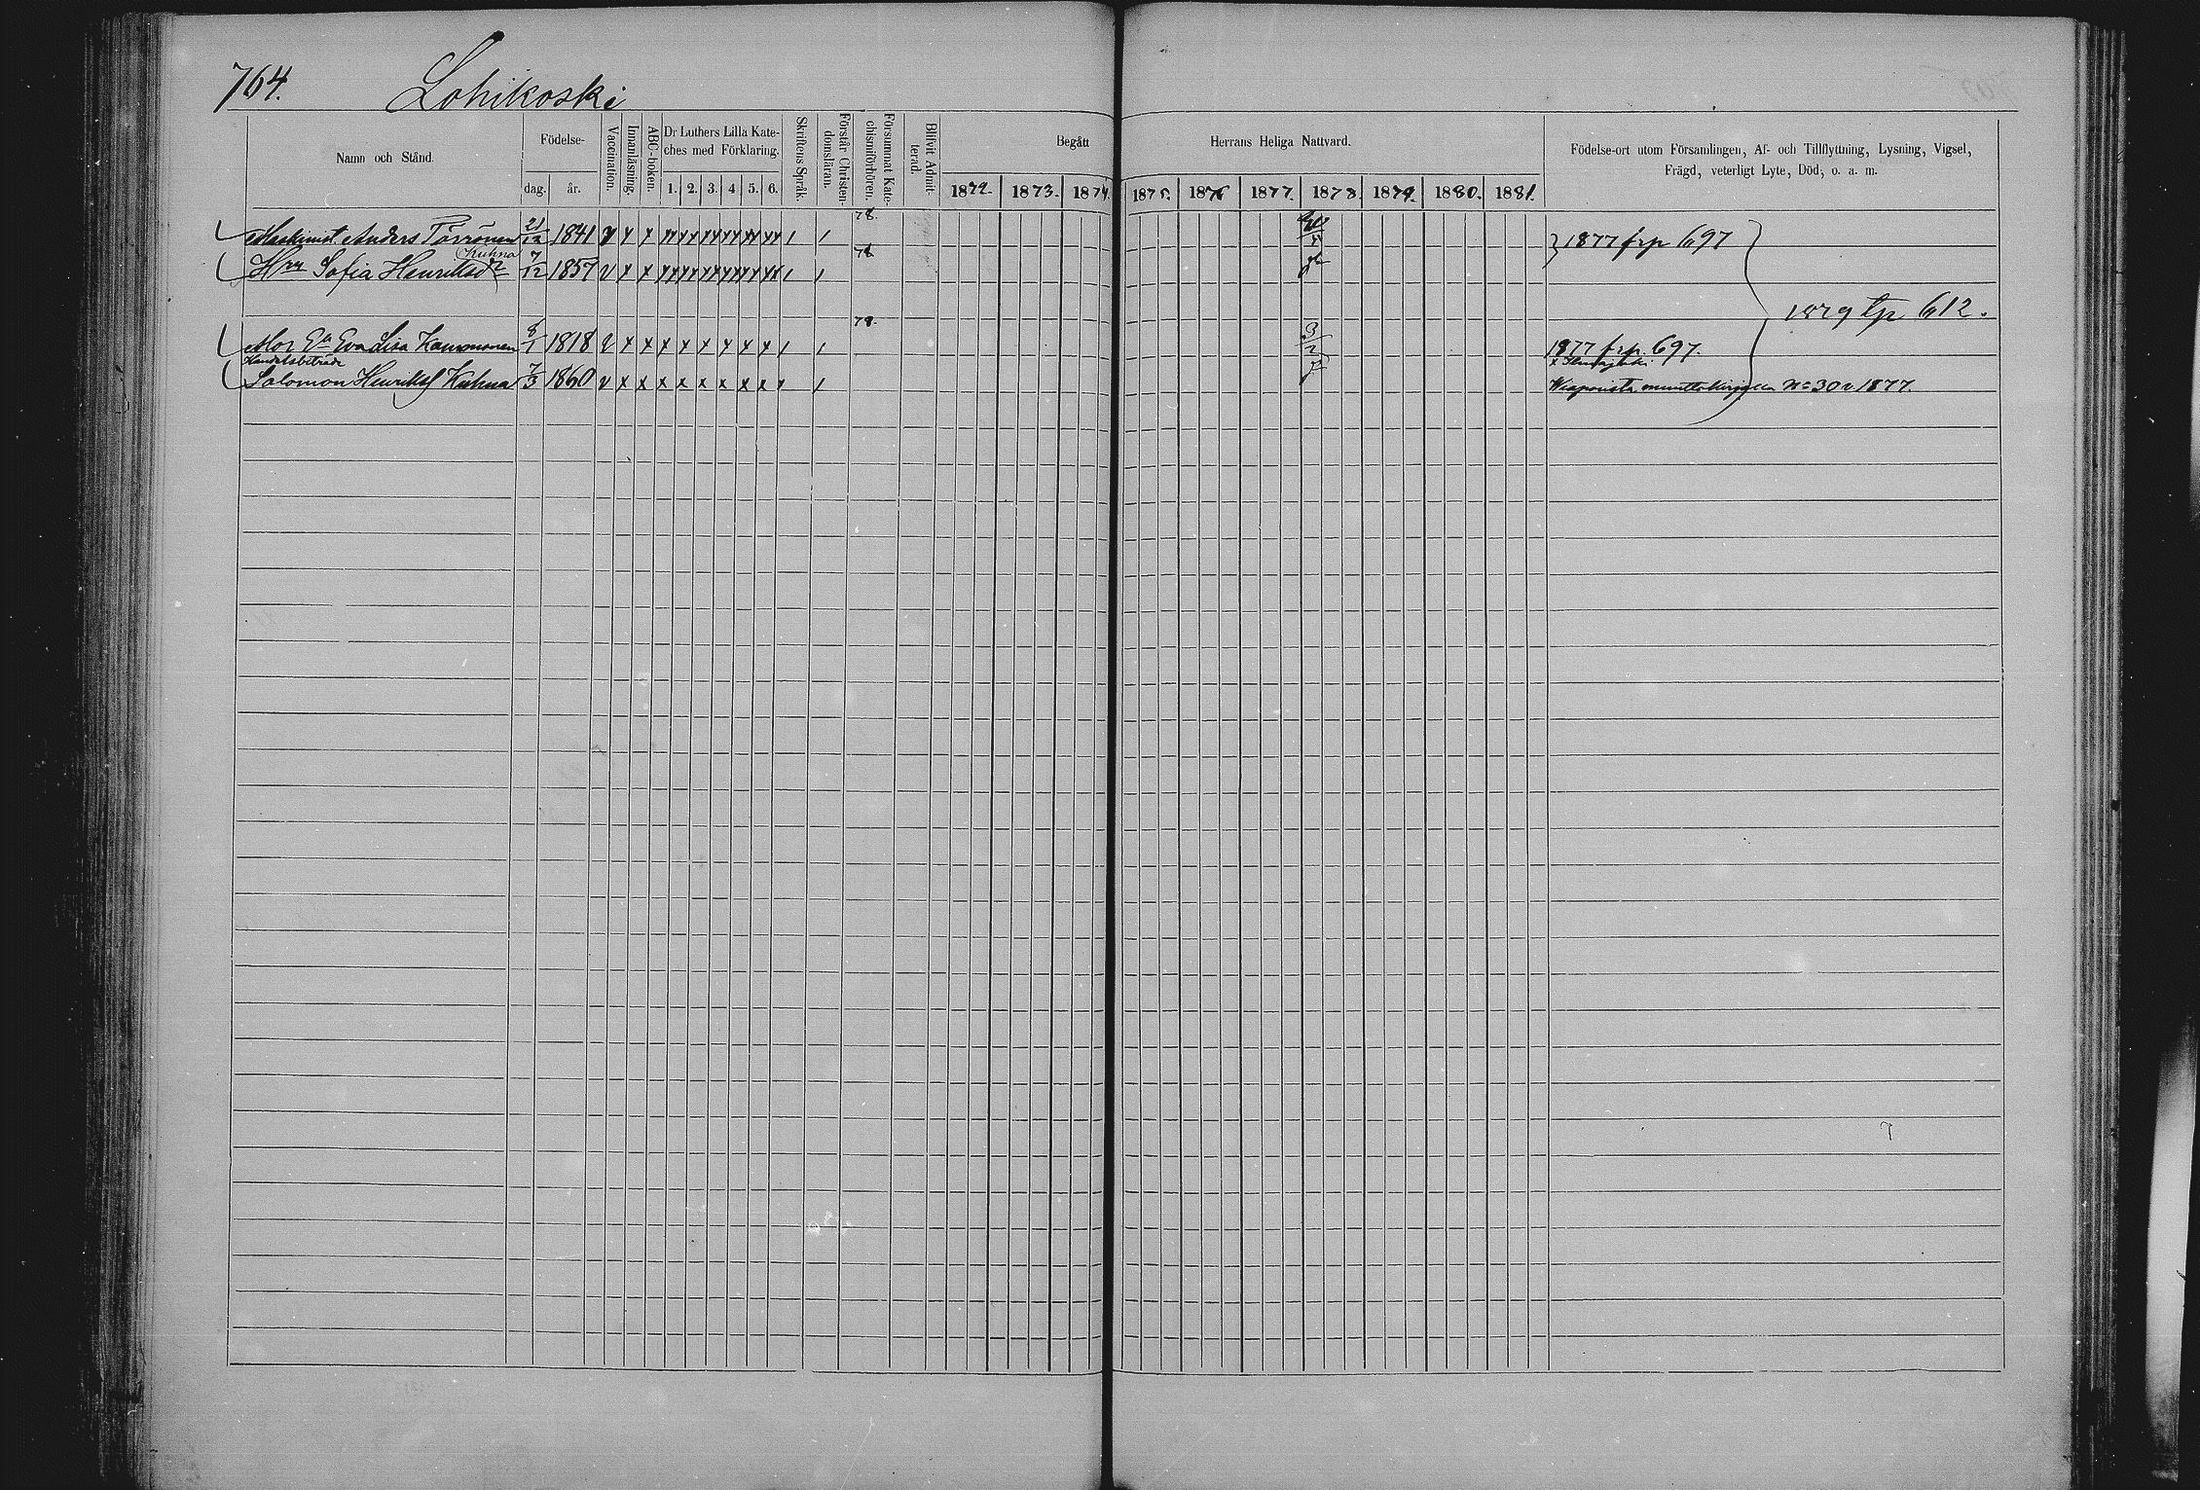 764. Lohikoski
Namn och Stånd.
Födelse-
dag. år.
Vaccination.
Innanläsning.
ABC-boken.
Dr Luthers Lilla Kate-
ches med Förklaring.
1. 2. 3. 4 5. 6.
Skriftens Språk.
Förstår Christen-
domsläran.
Försummat Kate-
chismiförhören.
Blifvit Admit-
terad.
Begått Herrans Heliga Nattvard.
1872. 1873. 1874. 1875. 1876 1877. 1878. 1879. 1880. 1881.
Födelse-ort utom Församlingen, Af- och Tillflyttning, Lysning, Vigsel,
Frägd, veterligt Lyte, Död, o. a. m.
78.
Maskinist Anders Törrönen 21/12 1841 v x x xx xx xx xx xx xx / / } 1877 frp 697
Kuhna 78
Hru Sofia Henriksdr 7/12 1857 v x x xx xx xx xx xx xx / /
1879 tp 612.
78.
Mor Ea Eva Lisa Kammonen 8/1 1818 v x x x x x x x x / / 3/2 1877 frp. 697.
Handelsbeträde
Solomon Henriksf Kuhna 7/3 1860 v x x x x x x x x / /
muuttokirjalla No 30 v. 1877.